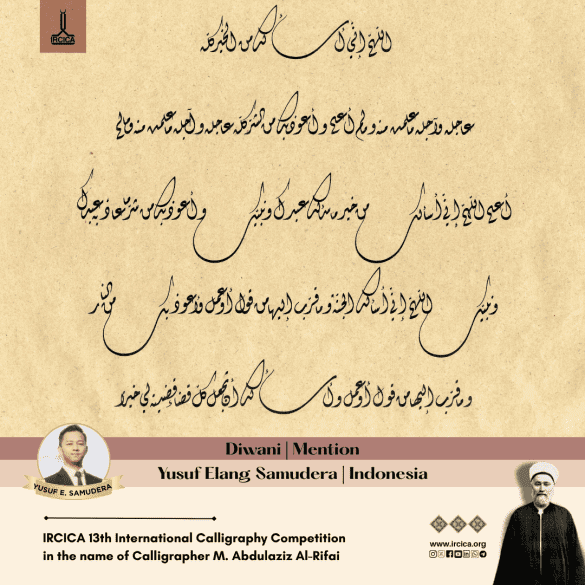 IRCICA
اللهم إني أسألك من الخير كله
عاجله وآجله ما علمت منه وما لم أعلم وأعوذ بك من الشر كله عاجله وآجله ما علمت منه وما لم
أعلم اللهم إني أسألك من خير ما سألك عبدك ونبيك وأعوذ بك من شر ما عاذ به عبدك
ونبيك اللهم إني أسألك الجنة وما قرب إليها من قول أو عمل وأعوذ بك من النار
وما قرب إليها من قول أو عمل وأسألك أن تجعل كل قضاء قضيته لي خيرا
Diwani | Mention
Yusuf Elang Samudera | Indonesia
YUSUF E. SAMUDERA
IRCICA 13th International Calligraphy Competition
in the name of Calligrapher M. Abdulaziz Al-Rifai
www.ircica.org